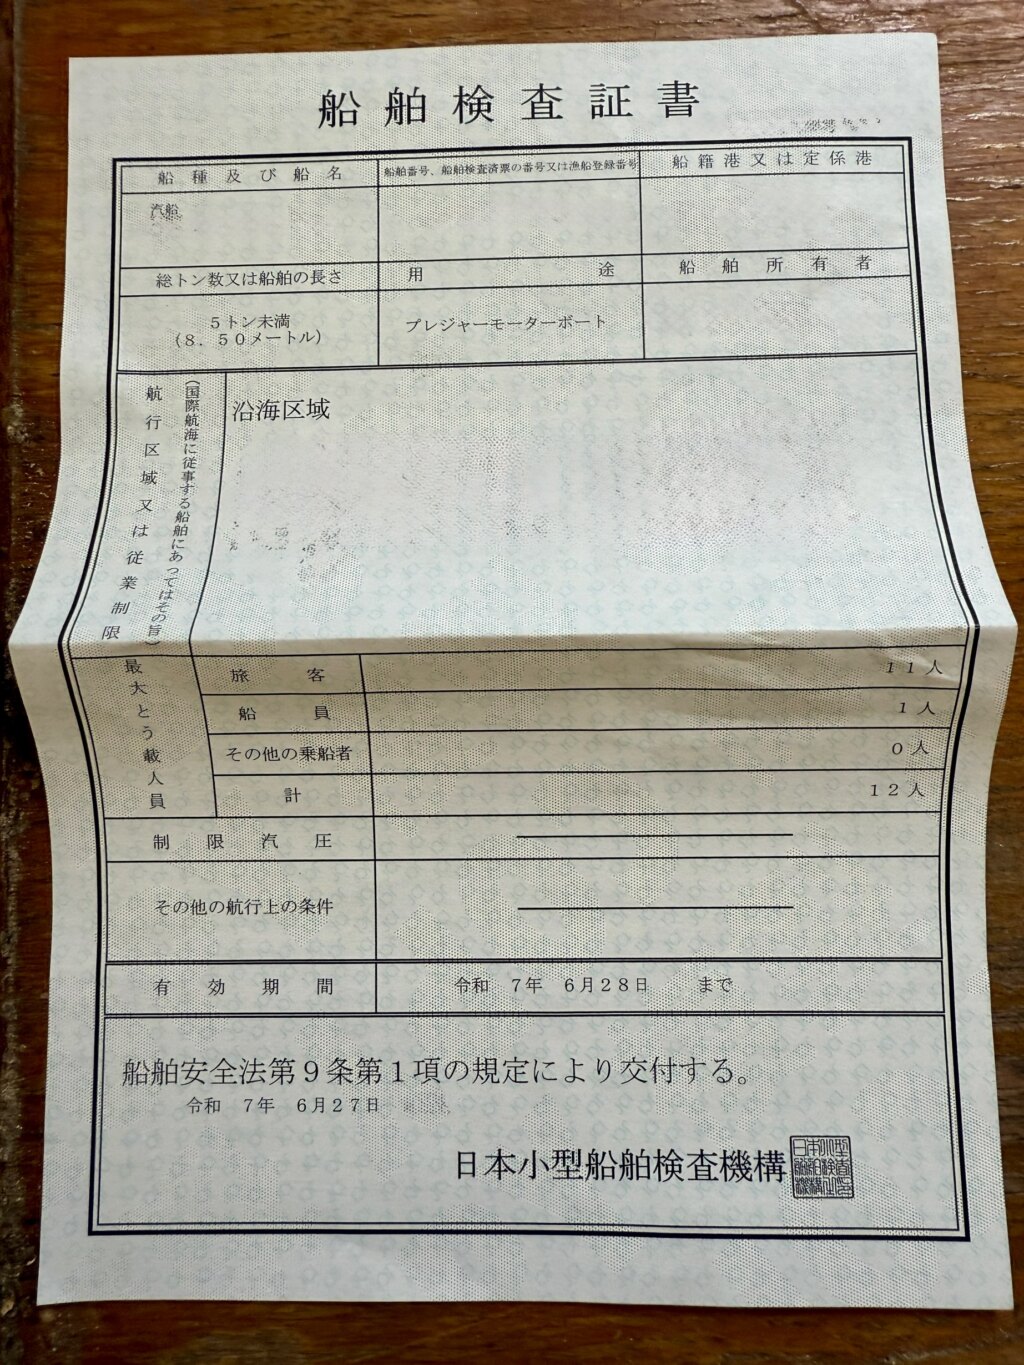 船舶検査証書
船種及び船名
船舶番号、船舶検査済票の番号又は漁船登録番号
船籍港又は定係港
汽船
総トン数又は船舶の長さ
用途
船舶所有者
５トン未満
（８．５０メートル）
プレジャーモーターボート
航行区域又は従業制限
（国際航海に従事する船舶にあってはその旨）
沿海区域
最大とう載人員
旅客
１１人
船員
１人
その他の乗船者
０人
計
１２人
制限汽圧
その他の航行上の条件
有効期間
令和　７年　６月２８日　まで
船舶安全法第９条第１項の規定により交付する。
令和　７年　６月２７日
日本小型船舶検査機構